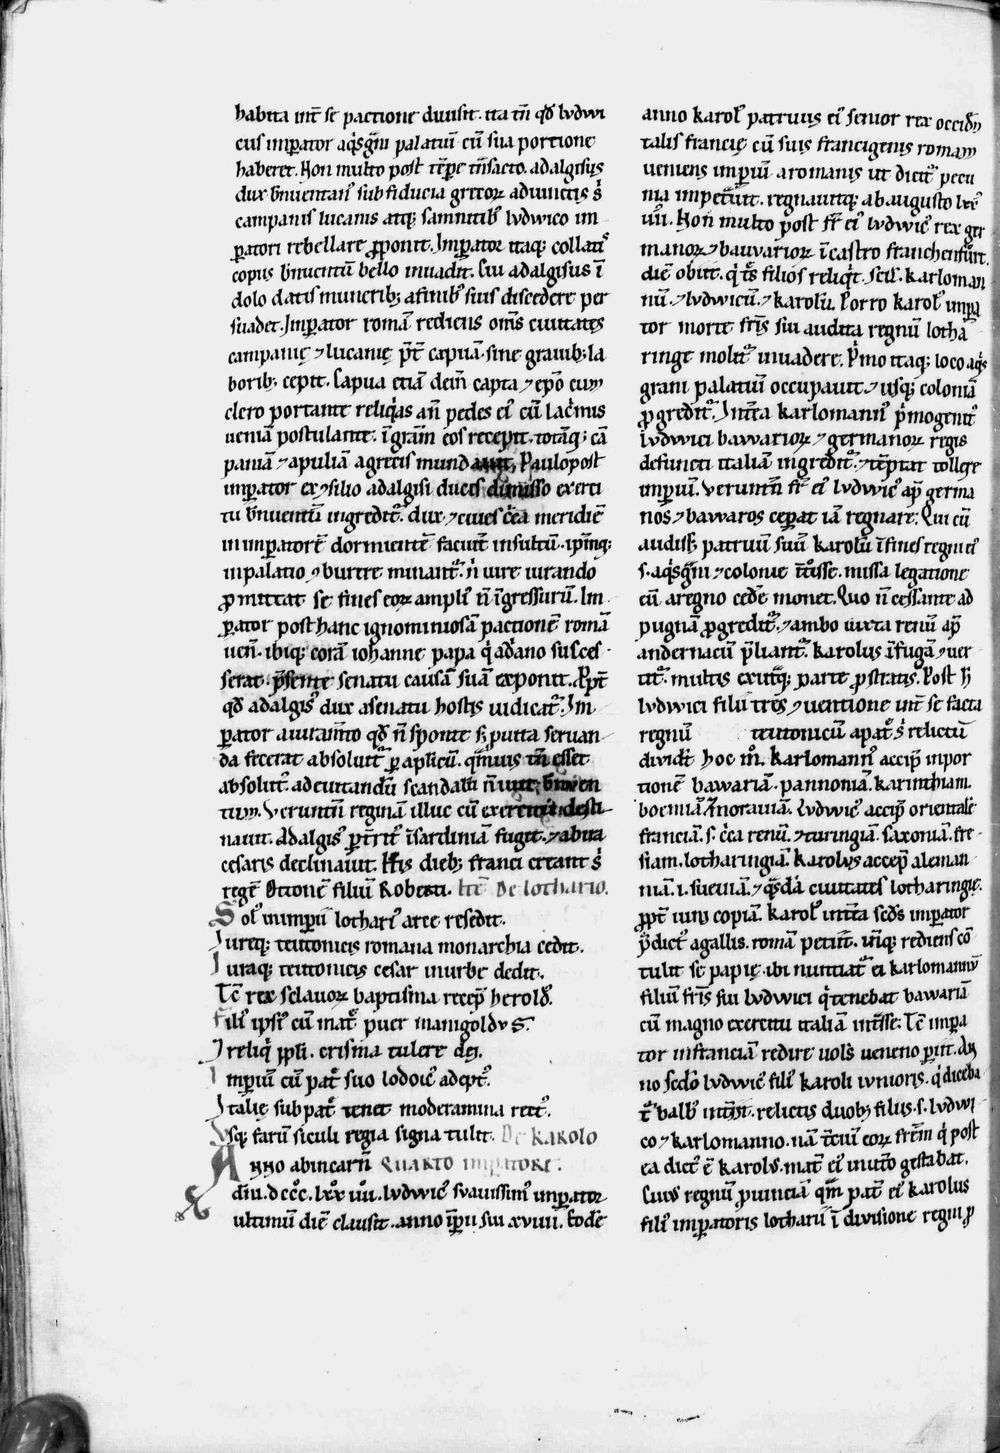 habita int̄ se pactione diuisit. ita tn̄ qd̄ lvdwi
cus imꝑator aq̇sgͣni palatiū cū sua portione
haberet. Non multo post tēꝑe tn̄sacto. adalgisus
dux bn̄uentan᷒ sub fiducia grecoꝝ adiunctis s̓
campanis lucanis atq; samnitib᷒ lvdwico im
ꝑatori rebellare ꝓponit. Imꝑator itaq; collat᷒
copiis bn̄uentū bello inuadit. Sui adalgisus ī
dolo datis munerib; afinib᷒ suis discedere per
suadet. Imꝑator romā rediens om̄s ciuitates
campanię ⁊ lucanię p̄t capuā. sine grauib; la
borib; cepit. Capua etiā dein̄ capta ⁊ ep̄o cum
clero portante reliq̇as an̄ pedes ei᷒ cū lac̓mis
ueniā postulante. ī grām eos recepit. totāq; cā
paniā ⁊ apuliā agrecis mundauit. Paulo post
imꝑator ex ⁊ filio adalgisi ducis dimisso exerci
tu bn̄uentū ingredit᷑. dux ⁊ ciues c̓ca meridiē
in imꝑatorē dormientē faciūt insultū. ipm̄q;
in palatio ⁊ burere minant᷑. n̓ iure iurando
ꝓmittat se fines eoꝝ ampli᷒ n̄ īgressurū. Im
ꝑator post hanc ignominiosā pactionē romā
uen̄. ibiq; corā iohanne papa q̇ adano succes
serat. p̄sente senatu causā suā exponit. Ppt̄
qd̄ adalgis᷒ dux asenatu hostis iudicat᷑. Im
ꝑator aiuramto qd̄ n̄ sponte s; ꝑuita seruan
da fecerat absoluit᷑ ꝑ aplicū. qm̄uis tn̄ esset
absolut᷒. ad euitandū scandalū n̄ iuit bn̄uen
tum. Veruntn̄ reginā illuc cū exercitu desti
nauit. Adalgis᷒ ꝑt̄rit᷒ ī sardiniā fugit. ⁊ abira
cesaris declinauit. His dieb; franci creant s̓
regē Ottonē filiū Roberti. Itē De lothario.
Sol᷒ inimꝑiū lothari᷒ arce resedit.
Iureq; teutonicis romana monarchia cedit.
Iuraq; teutonicis cesar in urbe dedit.
Tc̄ rex sclauoꝝ baptisma recep̄ herold᷒.
Fili᷒ ipsi᷒ cū mat̓ puer manigoldus.
I reliq̓ ppli. crisma tulere dei.
Imꝑiū cū pat̓ suo lodoic᷒ adept᷒.
Italię sub pat̓ tenet moderamina rect᷒.
Usq; farū siculi regia signa tulit. De KAROLO
Anno abincarn̄ QUARTO imꝑatore.
dn̄i. dccc. lxx iiii. lvdwic᷒ suauissim᷒ imꝑator
ultimū diē clausit. anno īꝑii sui xviiii. Eodē
anno karol᷒ patruus ei᷒ senior rex occidn̄
talis francię cū suis francigenis romam
ueniens imꝑiū aromanis ut dicit᷑ pecu
nia impet̄uit. regnauitq; ab augusto
iiii. Non multo post fr̄ ei᷒ lvdwic᷒ rex ger
manoꝝ ⁊ bauuarioꝝ ī castro franchenfurt.
diē obiit. q̓ tr̄s filios reliq̓t. scil. karloman
nū. ⁊ lvdwicū. ⁊ karolū. Porro karol᷒ imꝑa
tor morte fr̄is sui audita regnū lotha
ringe molit᷑ inuadere. P̓mo itaq; loco aq̓s
grani palatiū occupauit. ⁊ usq; coloniā
ꝓgredit᷑. Int̄ea karlomann᷒ p̓mogenit᷒
lvdwici bawarioꝝ ⁊ germanoꝝ regis
defuncti italiā ingredit᷑. ⁊ tēptat tollere
imꝑiū. Veruntn̄ fr̄ ei᷒ lvdwic᷒ ap̄ germa
nos ⁊ bawaros ceperat iā regnare. Qui cū
audiss; patruū suū karolū ī fines regni ei᷒
.s. aq̇sgͣni ⁊ colonie t̄nsisse. missa legatione
cū aregno cedē monet. Quo n̄ cessante ad
pugnā ꝓgredit᷑. ⁊ ambo iuxta renū ap̄
andernacū p̄liant᷑. karolus ī fugā ⁊ ver
tit᷑. multis exutq; parte ꝓstratis. Post h̄
lvdwici filii tres ⁊ uentione int̄ se facta
regnū teutonicū apat̓ s̓ relictū
diuidūt hoc m̊. Karlomann᷒ accip̄ inpor
tionē bawariā. pannoniā. karinthiam.
boemiā ⁊ morauiā. Lvdwic᷒ accip̄ orientalē
franciā. s. c̓ca renū. ⁊ turingiā. saxoniā. fre
siam. lotharingiā. Karolvs accep̄ aleman
niā. i. sueuiā. ⁊ qͣsdā ciuitates lotharingię.
ꝓpt̄ uini copiā. Karol᷒ int̄ea scd̄s imꝑator
p̄dict᷒ agallis. romā petiit. īn̄q; rediens cō
tulit se papię. ibi nuntiat᷑ ei karlomannū
filiū fr̄is sui lvdwici q̓ tenebat bawariā
cū magno exercitu italiā int̄sse. Tc̄ imꝑa
tor in franciā redire uols ueneno ꝑiit. An
no scdo lvdwic᷒ fili᷒ karoli iunioris. q̓ diceba
t᷑ balb᷒ int̓iit. relictis duob; filiis. s. lvdwi
co ⁊ karlomanno. nā t̓ciū eoꝝ frēm q̓ post
ea dict᷒ ē karolvs. mat̓ ei᷒ in ut̓o gestabat.
Cuius regnū ꝓuinciā qͣm pat̓ ei᷒ karolus
fili᷒ imꝑatoris lotharii ī diuisione regni ꝓ